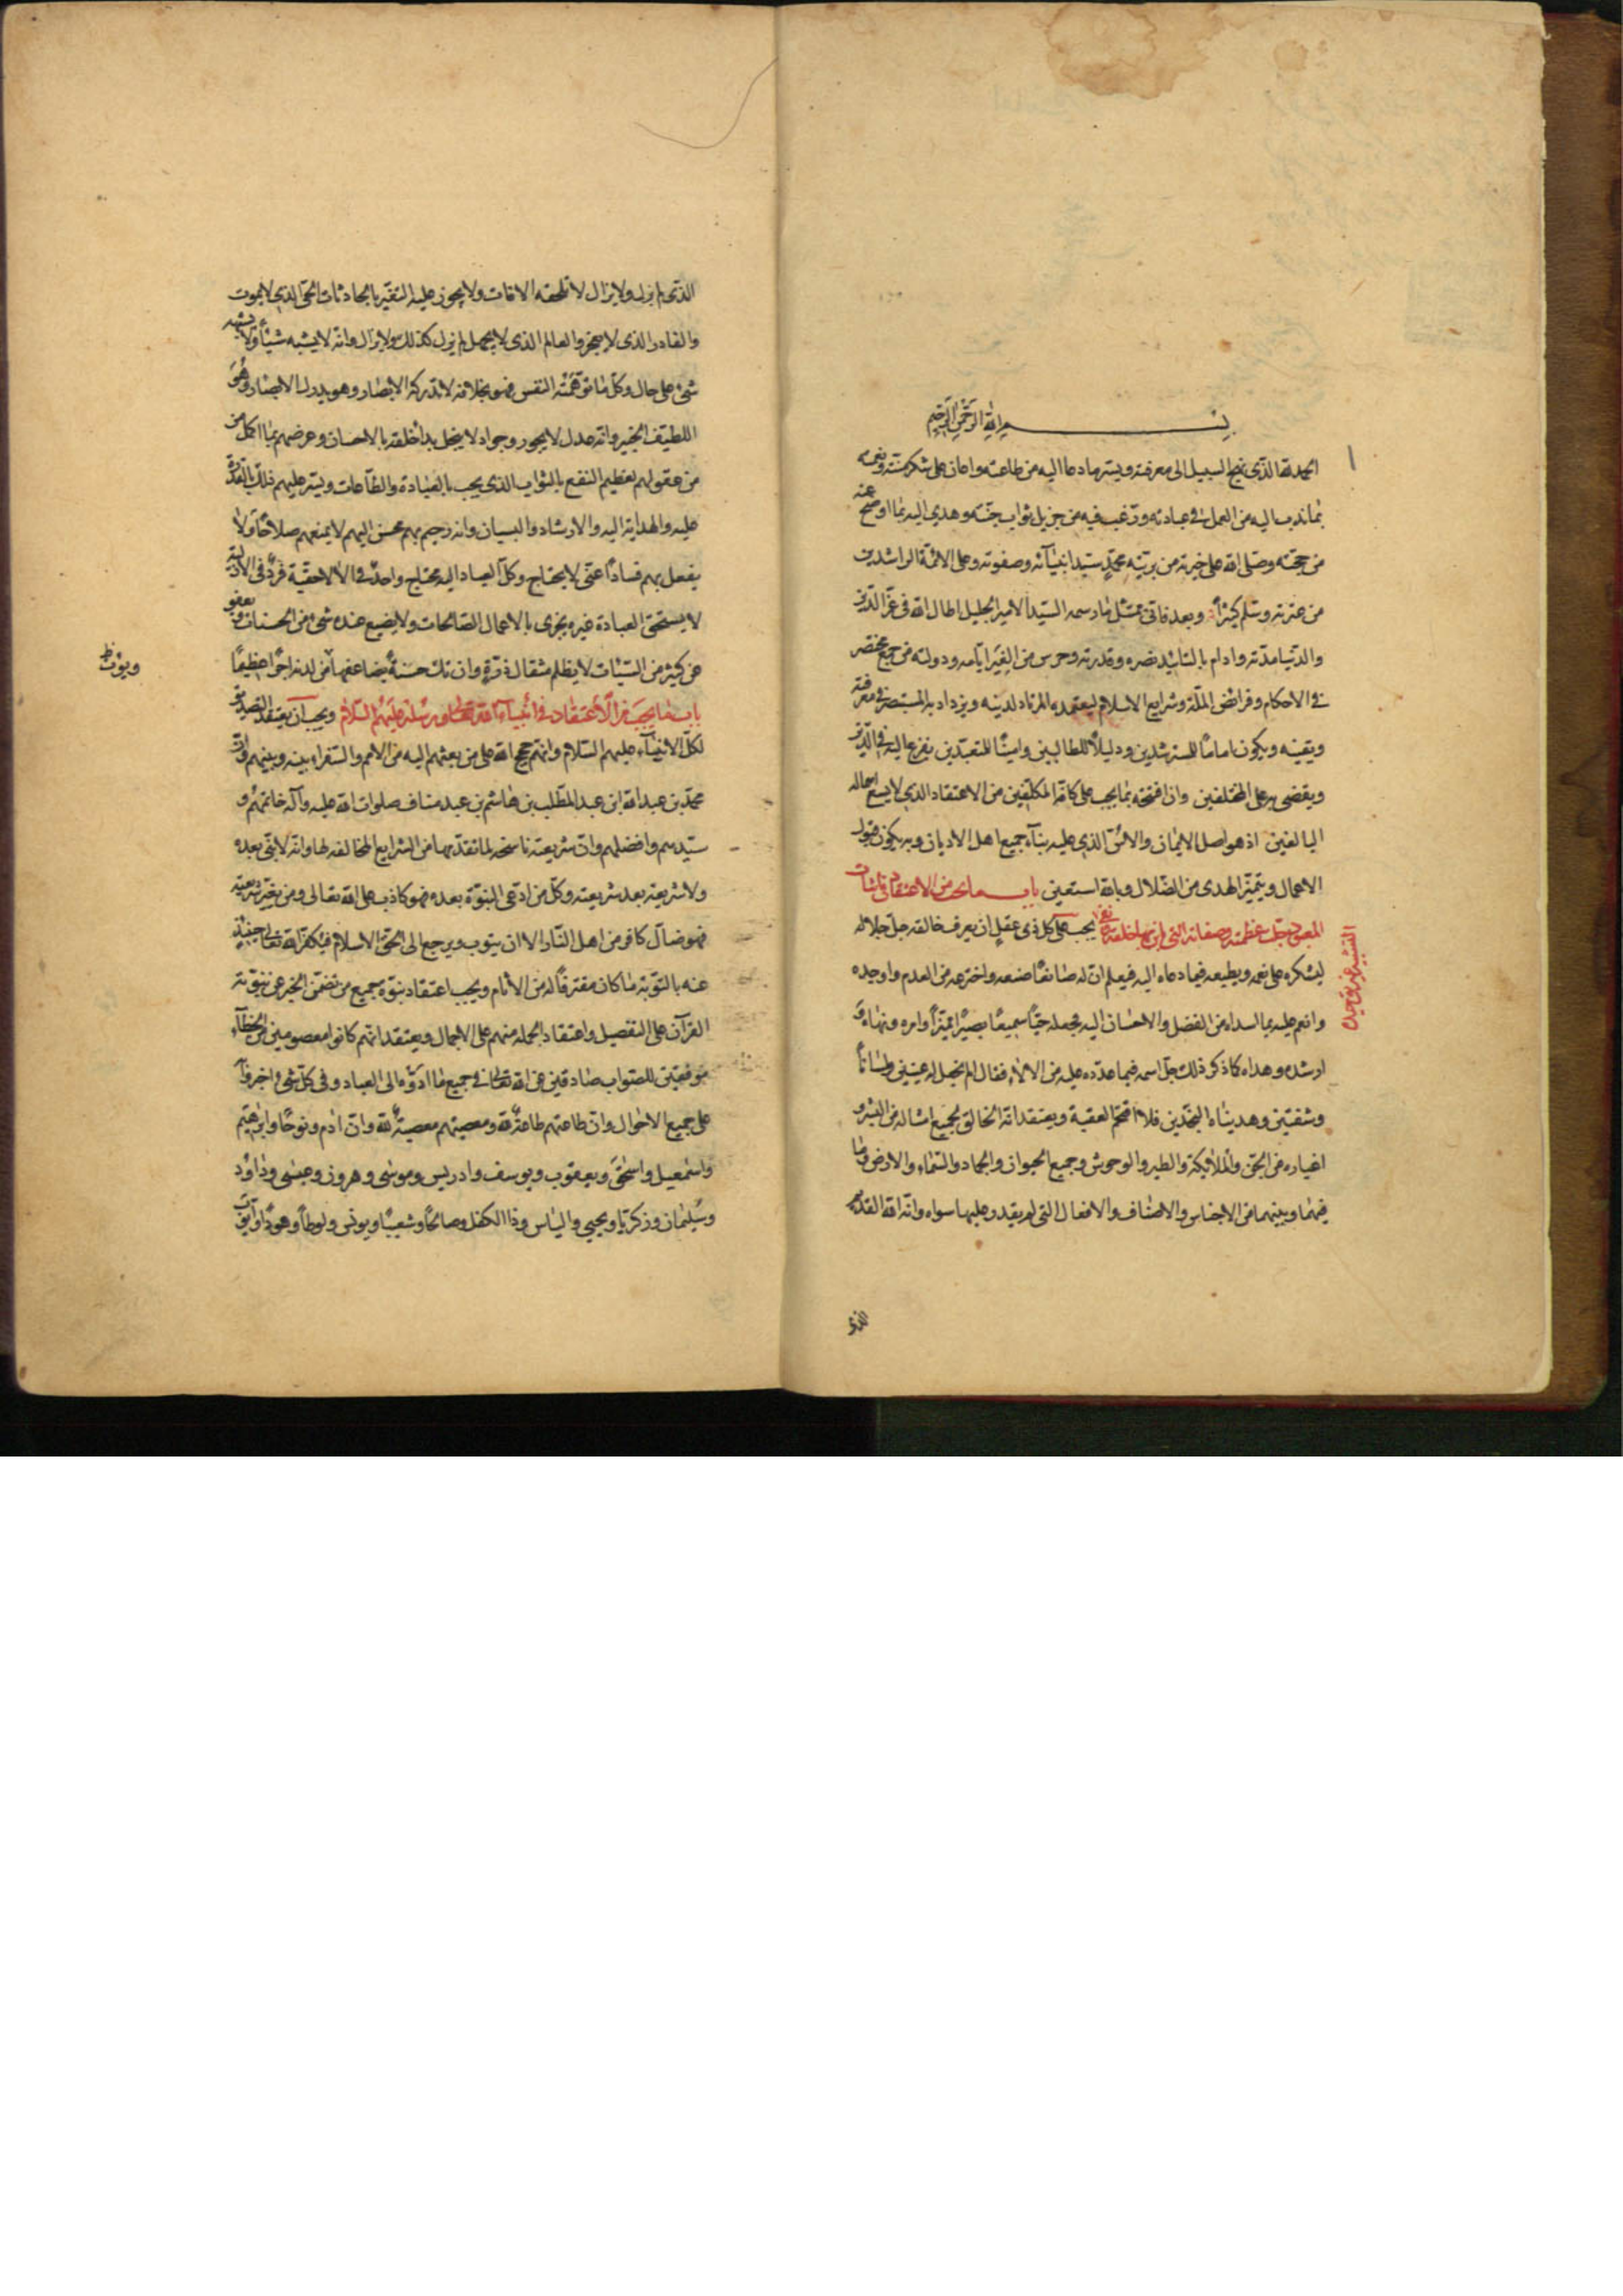 بسم الله الرحمن الرحيم
الحمد لله الذي نهج السبيل الى معرفته ويسر ما دعا اليه من طاعته واعان على شكر منته ونعمته
بما ندب اليه من العمل في عبادته ورغب فيه من جزيل ثواب جنته وهدى اليه بما اوضح عنه
من حجته وصلى الله على خيرته من بريته محمدٍ سيد انبيآئه وصفوته وعلى الائمة الراشدين
من عترته وسلم كثيراً وبعد فاني ممتثل ما رسمه السيد الامير الجليل اطال الله في عز الدين
والدنيا مدته وادام بالتاييد نصره وقدرته وحرس من الغير ايامه ودولته من جمع مختصر
في الاحكام وفرائض الملة وشرايع الاسلام ليعتمده المرتاد لدينه ويزداد به المستبصر في معرفته
ويقينه ويكون اماماً للمسترشدين ودليلاً للطالبين وامينًا للمتعبدين يفزع اليه في الدين
ويقضى به على المختلفين وان افتتحه بما يجب على كافة المكلفين من الاعتقاد الذي لا يسع اهماله
البالغين اذ هو اصل الايمان والاسّ الذي عليه بنآء جميع اهل الاديان وبه يكون قبول
الاعمال ويتميز الهدى من الضلال وبالله استعين باب ما يجب من الاعتقاد في اثبات
المعبود جلت عظمته وصفاته التي باين بها خلقه ونفى يجب على كل ذي عقلٍ ان يعرف خالقه جل جلاله
التشبيه عنه وتوحيده
ليشكره على نعمه ويطيعه فيما دعاه اليه فيعلم ان له صانعًا صنعه واخترعه من العدم واوجده
وانعم عليه بما اسداه من الفضل والاحسان اليه فجعله حيًّا سميعًا بصيرًا مميّزًا وامره ونهاه و
ارشده وهداه كما ذكر ذلك جل اسمه فيما عدّده عليه من الالآء فقال الم نجعل له عينين ولسانًا
وشفتين وهديناه النجدين فلا اقتحم العقبة ويعتقد انه الخالق لجميع امثاله من البشر و
اغياره من الجن والملائكة والطير والوحوش وجميع الحيوان والجماد والسماء والارض وما
فيهما وبينهما من الاجناس والاصناف والافعال التي لم يقدر عليها سواه وانه الله القديم
الذي
الذي لم يزل ولا يزال لا تلحقه الافات ولا يجوز عليه التغير بالحادثات الحي الذي لا يموت
والقادر الذي لا يعجز والعالم الذي لا يجهل لم يزل كذلك ولا يزال وانه لا يشبه شيئاً ولا يشبهه
شئ على حال وكل ما توهمته النفس فهو بخلافه لا تدركه الابصار وهو يدرك الابصار وهو
اللطيف الخبير وانه عدل لا يجور وجواد لا يبخل بدأ خلقه بالاحسان وعرضهم بما اكمل من
من عقولهم لعظيم النفع بالثواب الذي يجب بالعبادة والطاعات ويسر عليهم ذلك بالقدرة
عليه والهداية اليه والارشاد والبيان وانه رحيم بهم محسن اليهم لا يمنعهم صلاحًا ولا
يفعل بهم فسادًا غني لا يحتاج وكل العباد اليه محتاج واحدٌ في الالاهيّة فردٌ في الازلية
لا يستحق العبادة غيره يجزى بالاعمال الصالحات ولا يضيع عنده شئ من الحسنات ويعفو
عن كثير من السيّئات لا يظلم مثقال ذرة وان تك حسنةً يضاعفها من لدنه اجرًا عظيمًا
ويؤت
باب ما يجب من الاعتقاد في أنبياء الله تعالى ورسله عليهم السلام ويجب ان يعتقد التصديق
لكل الانبيآء عليهم السلام وانهم حجج الله على من بعثهم اليه من الامم والسفراء بينه وبينهم وان
محمد بن عبد الله ابن عبد المطلب بن هاشم بن عبد مناف صلوات الله عليه وآله خاتمهم و
سيدهم وافضلهم وان شريعته ناسخه لما تقدمها من الشرايع المخالفه لها وانه لا نبي بعده
ولا شريعة بعد شريعته وكل من ادعى النبوة بعده فهو كاذب على الله تعالى ومن يغير شريعته
فهو ضال كافر من اهل النار الا ان يتوب ويرجع الى الحق بالاسلام فيكفر الله تعالى حينئذٍ
عنه بالتوبة ما كان مقترفاً له من الأثام ويجب اعتقاد نبوة جميع من تضمن الخبر عن نبوته
القرآن على التفصيل واعتقاد الجملة منهم على الاجمال ويعتقد انهم كانوا معصومين من الخطآء
موفقين للصواب صادقين عن الله تعالى في جميع ما ادوه الى العباد وفي كل شئ اخبروا
على جميع الاحوال وان طاعتهم طاعةٌ لله ومعصيتهم معصيةٌ لله وان ادم ونوحًا وابراهيم
واسمعيل واسحق ويعقوب ويوسف وادريس وموسى وهرون وعيسى وداود
وسليمان وزكريا ويحيى والياس وذا الكفل وصالحًا وشعيبًا ويونس ولوطاً وهودًا وايوب